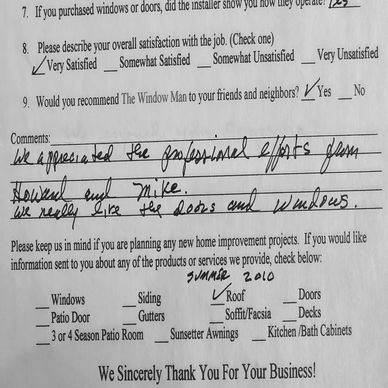 7. If you purchased windows or doors, did the installer show you how they operate? Yes
8. Please describe your overall satisfaction with the job. (Check one)
✓Very Satisfied __Somewhat Satisfied __Somewhat Unsatisfied __Very Unsatisfied
9. Would you recommend The Window Man to your friends and neighbors? ✓Yes __No
Comments:
We appreciated the professional efforts from
Howard and Mike.
We really like the doors and windows.
Please keep us in mind if you are planning any new home improvement projects. If you would like
information sent to you about any of the products or services we provide, check below:
SUMMER 2010
__Windows __Siding ✓Roof __Doors
__Patio Door __Gutters __Soffit/Facsia __Decks
__3 or 4 Season Patio Room __Sunsetter Awnings __Kitchen/Bath Cabinets
We Sincerely Thank You For Your Business!